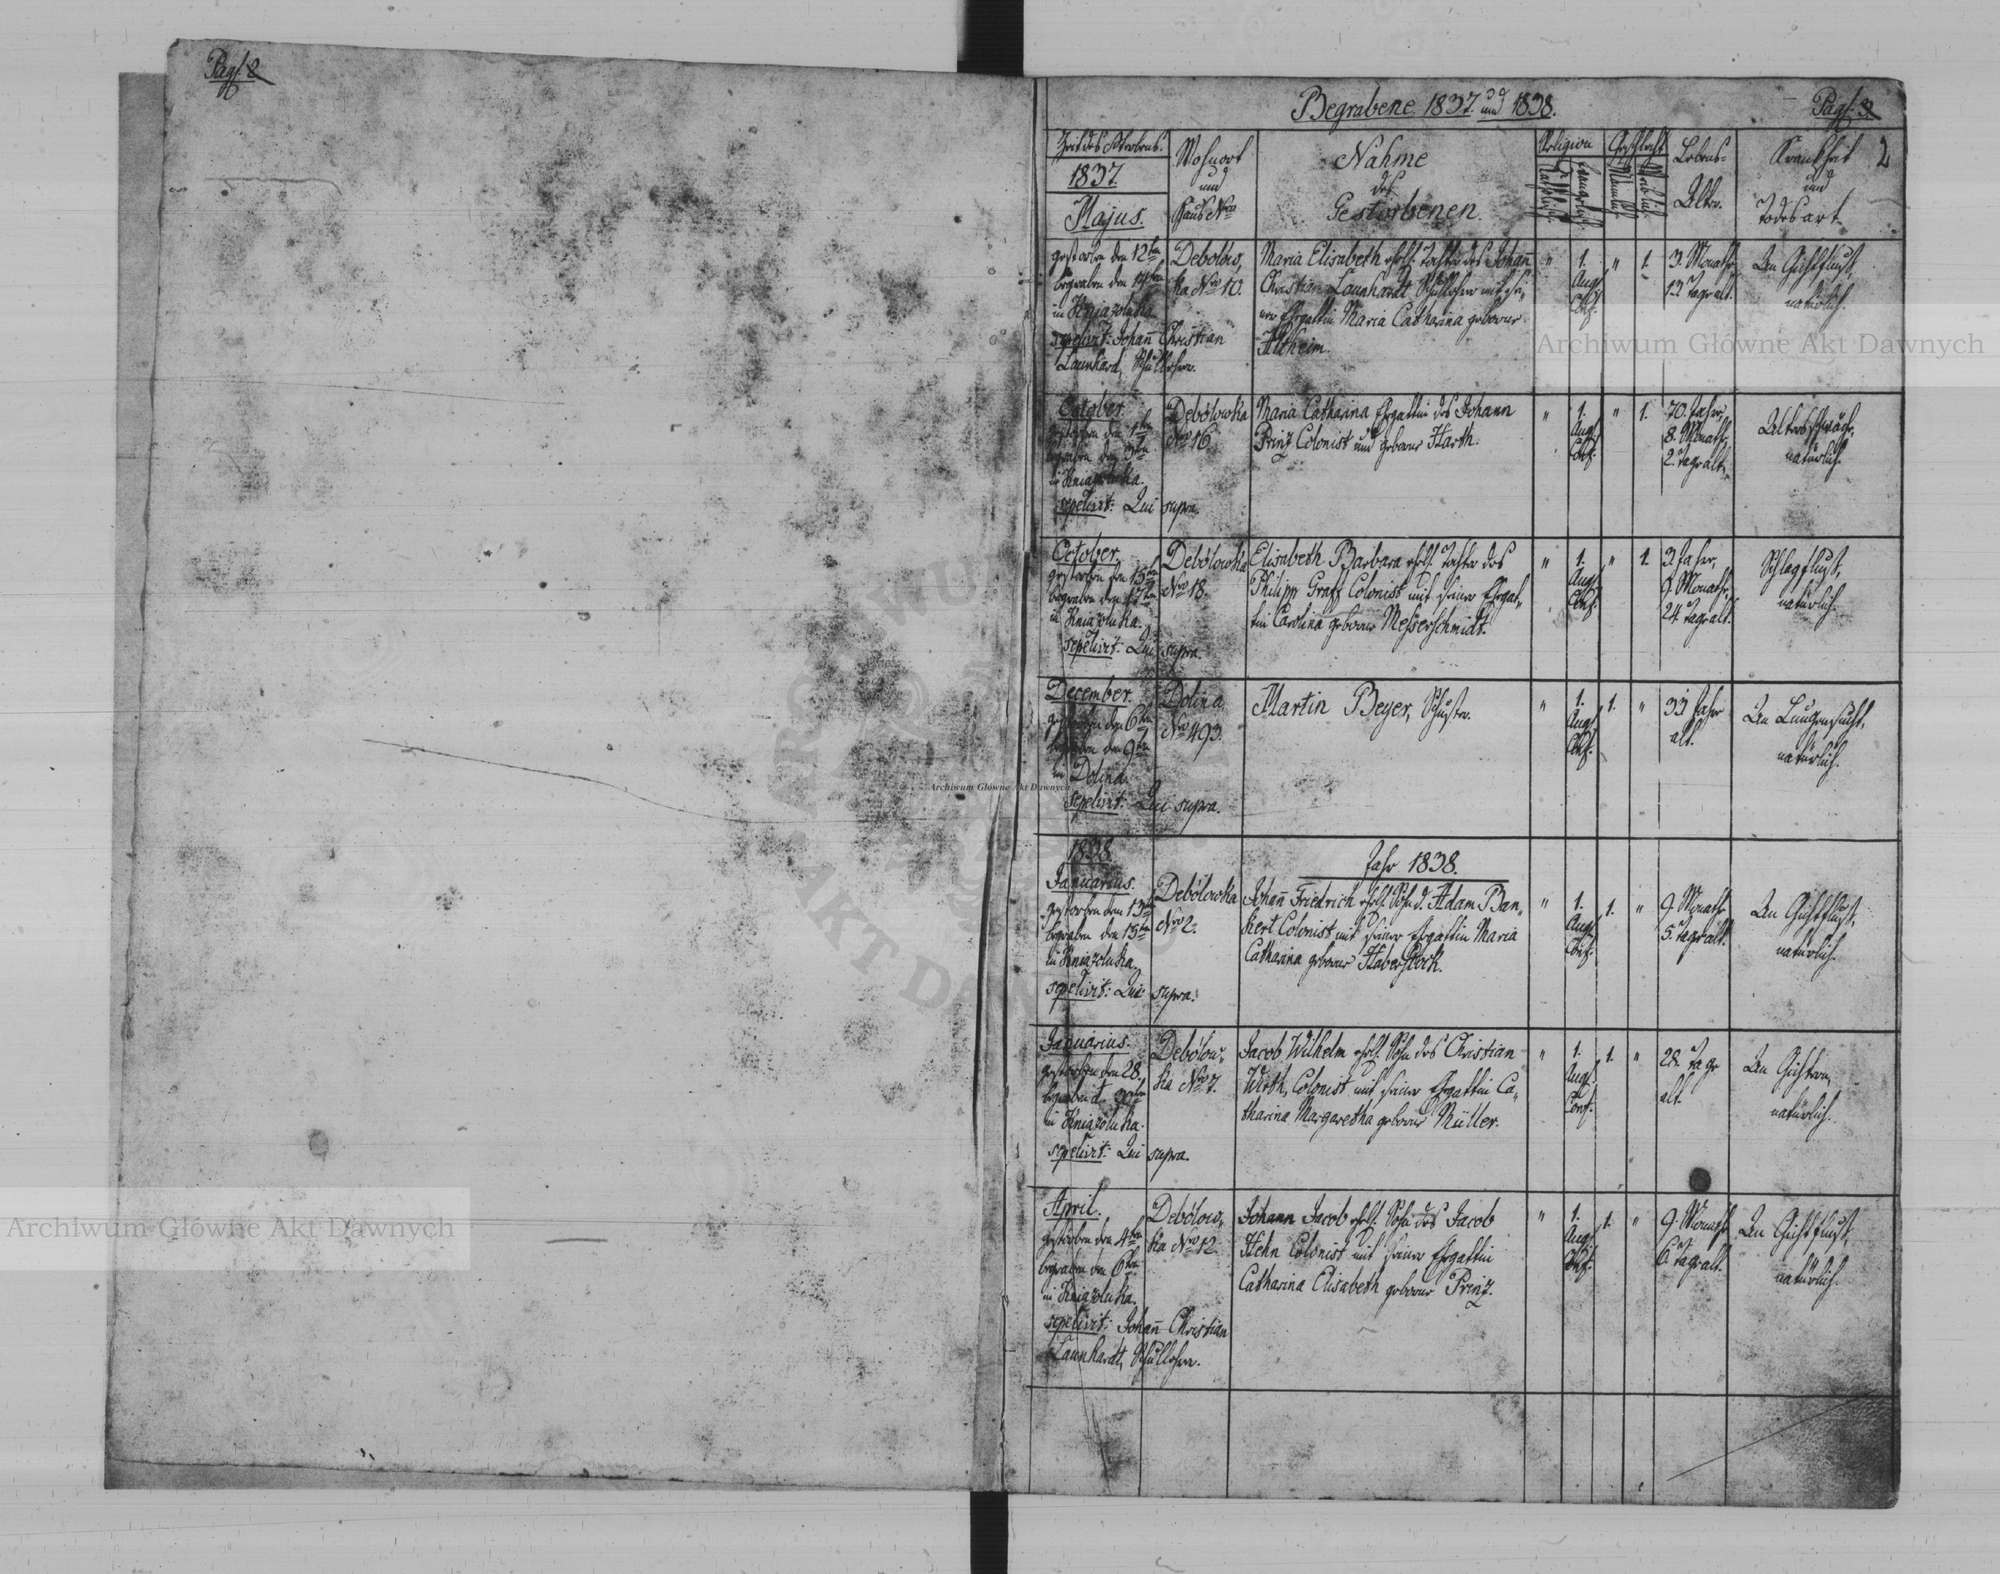 Pag: 2
Begrabene 1837. und 1838.
Pag: 3
2
Zeit des Sterbens.
1837.
Majus.
Wohnort
und
Haus Nro
Nahme
des
Gestorbenen.
Religion
Katholisch
Evangelisch
Geschlecht
Männlich
Weiblich
Lebens-
Alter.
Krankheit
und
Todesart.
gestorben den 12ten
begraben den 14ten
in Kniazoluka
sepelivit: Johañ Christian
Launhard, Schullehrer.
Debolów,
ka Nro 10.
Maria Elisabeth ehel. Tochter des Johan
Christian Launhardt Schullehrer mit sei,,
ner Ehegattin Maria Catharina geborne
Altheim.
" 1. " 1.
Aug.
Conf.
3. Monathe,
13 Tage alt.
An Gichtfluß,
natürlich.
October.
gestorben den 1ten
begraben den 3ten
in Kniazoluka
sepelivit: Qui supra.
Debólowka
Nro 16.
Maria Catharina Ehegattin des Johann
Prinz Colonist und geborne Harth.
" 1. " 1.
Aug.
Conf.
70. Jahre,
8. Monathe,
2. Tage alt.
Altersschwäche,
natürlich.
October.
gestorben den 15ten
begraben den 17ten
in Kniazoluka.
sepelivit: Qui supra.
Debólowka
Nro 18.
Elisabeth Barbara ehel. Tochter des
Philipp Graff Colonist mit seiner Ehegat,,
tin Carolina geborne Messerschmidt.
" 1. " 1.
Aug.
Conf.
3 Jahre,
9. Monathe,
24 Tage alt.
Schlagfluß,
natürlich.
December.
gestorben den 6ten
begraben den 9ten
in Dolina.
sepelivit: Qui supra.
Dolina
Nro 493.
Martin Beyer, Schuster.
" 1. 1. "
Aug.
Conf.
33 Jahr
alt.
An Lungensucht,
natürlich.
1838.
Januarius.
gestorben den 13ten
begraben den 15ten
in Kniazoluka
sepelivit: Qui supra.
Debólowka
Nro 2.
Jahr 1838.
Johañ Friedrich ehel. Sohn d. Adam Ban,,
kert Colonist mit seiner Ehegattin Maria
Catharina geborne Haberstock.
" 1. 1. "
Aug.
Conf.
9. Monath
5. Tage alt.
An Gichtfluß,
natürlich.
Januarius.
gestorben den 28.
begraben d. 30ten
in Kniazoluka.
sepelivit: Qui supra.
Debólow,
ka Nro 7.
Jacob Wilhelm ehel. Sohn des Christian
Wirth, Colonist mit seiner Ehegattin Ca,,
tharina Margaretha geborne Müller.
" 1. 1. "
Aug.
Conf.
28. Tage
alt.
An Gichtern,
natürlich.
April.
gestorben den 4ten
begraben den 6ten
in Kniazoluka.
sepelivit: Johañ Christian
Launhardt, Schullehrer.
Debólow,
ka Nro 12.
Johann Jacob ehel. Sohn des Jacob
Hehn Colonist mit seiner Ehegattin
Catharina Elisabeth geborne Prinz.
" 1. 1. "
Aug.
Conf.
9. Monath
6. Tage alt.
An Gichtfluß,
natürlich.
Archiwum Główne Akt Dawnych
Archiwum Główne Akt Dawnych
Archiwum Główne Akt Dawnych